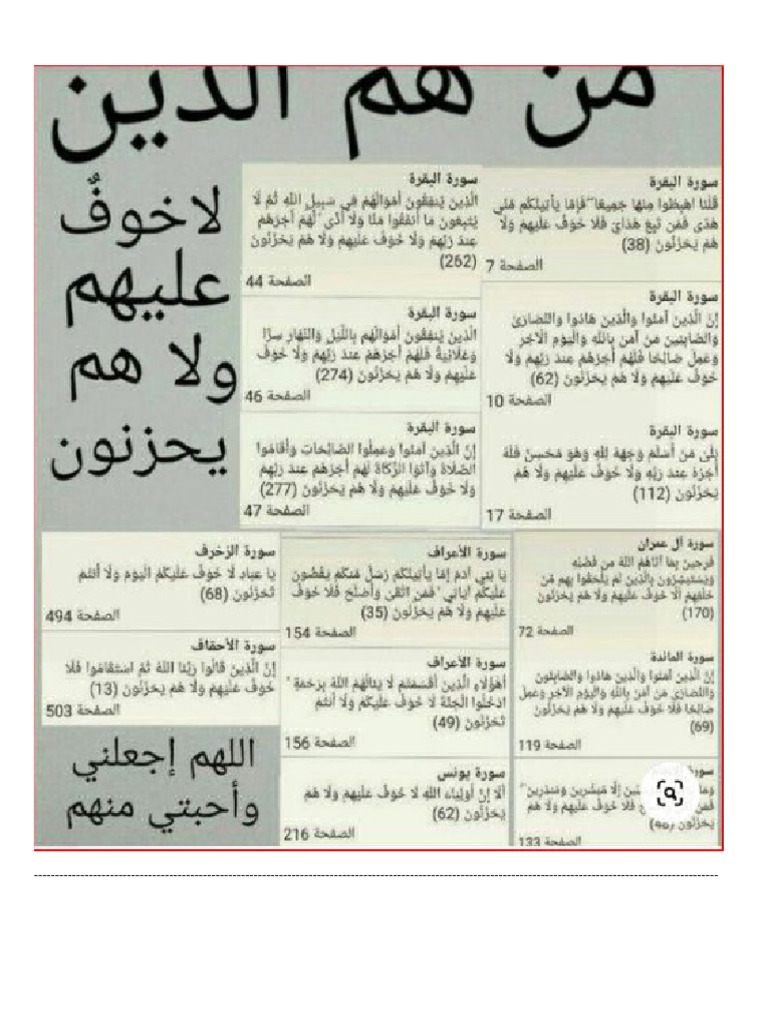 من هم الذين
لاخوفٌ
عليهم
ولا هم
يحزنون
سورة البقرة
قُلْنَا اهْبِطُوا مِنْهَا جَمِيعًا ۖ فَإِمَّا يَأْتِيَنَّكُم مِّنِّي
هُدًى فَمَن تَبِعَ هُدَايَ فَلَا خَوْفٌ عَلَيْهِمْ وَلَا
هُمْ يَحْزَنُونَ (38)
الصفحة 7
سورة البقرة
إِنَّ الَّذِينَ آمَنُوا وَالَّذِينَ هَادُوا وَالنَّصَارَىٰ
وَالصَّابِئِينَ مَنْ آمَنَ بِاللَّهِ وَالْيَوْمِ الْآخِرِ
وَعَمِلَ صَالِحًا فَلَهُمْ أَجْرُهُمْ عِندَ رَبِّهِمْ وَلَا
خَوْفٌ عَلَيْهِمْ وَلَا هُمْ يَحْزَنُونَ (62)
الصفحة 10
سورة البقرة
بَلَىٰ مَنْ أَسْلَمَ وَجْهَهُ لِلَّهِ وَهُوَ مُحْسِنٌ فَلَهُ
أَجْرُهُ عِندَ رَبِّهِ وَلَا خَوْفٌ عَلَيْهِمْ وَلَا هُمْ
يَحْزَنُونَ (112)
الصفحة 17
سورة البقرة
الَّذِينَ يُنفِقُونَ أَمْوَالَهُمْ فِي سَبِيلِ اللَّهِ ثُمَّ لَا
يُتْبِعُونَ مَا أَنفَقُوا مَنًّا وَلَا أَذًى ۙ لَّهُمْ أَجْرُهُمْ
عِندَ رَبِّهِمْ وَلَا خَوْفٌ عَلَيْهِمْ وَلَا هُمْ يَحْزَنُونَ
(262)
الصفحة 44
سورة البقرة
الَّذِينَ يُنفِقُونَ أَمْوَالَهُم بِاللَّيْلِ وَالنَّهَارِ سِرًّا
وَعَلَانِيَةً فَلَهُمْ أَجْرُهُمْ عِندَ رَبِّهِمْ وَلَا خَوْفٌ
عَلَيْهِمْ وَلَا هُمْ يَحْزَنُونَ (274)
الصفحة 46
سورة البقرة
إِنَّ الَّذِينَ آمَنُوا وَعَمِلُوا الصَّالِحَاتِ وَأَقَامُوا
الصَّلَاةَ وَآتَوُا الزَّكَاةَ لَهُمْ أَجْرُهُمْ عِندَ رَبِّهِمْ
وَلَا خَوْفٌ عَلَيْهِمْ وَلَا هُمْ يَحْزَنُونَ (277)
الصفحة 47
سورة آل عمران
فَرِحِينَ بِمَا آتَاهُمُ اللَّهُ مِن فَضْلِهِ
وَيَسْتَبْشِرُونَ بِالَّذِينَ لَمْ يَلْحَقُوا بِهِم مِّنْ
خَلْفِهِمْ أَلَّا خَوْفٌ عَلَيْهِمْ وَلَا هُمْ يَحْزَنُونَ
(170)
الصفحة 72
سورة المائدة
إِنَّ الَّذِينَ آمَنُوا وَالَّذِينَ هَادُوا وَالصَّابِئُونَ
وَالنَّصَارَىٰ مَنْ آمَنَ بِاللَّهِ وَالْيَوْمِ الْآخِرِ وَعَمِلَ
صَالِحًا فَلَا خَوْفٌ عَلَيْهِمْ وَلَا هُمْ يَحْزَنُونَ
(69)
الصفحة 119
سورة
وَمَا إِلَّا مُبَشِّرِينَ وَمُنذِرِينَ ۖ
فَمَنْ فَلَا خَوْفٌ عَلَيْهِمْ وَلَا هُمْ
يَحْزَنُونَ (48)
الصفحة 133
سورة الأعراف
يَا بَنِي آدَمَ إِمَّا يَأْتِيَنَّكُمْ رُسُلٌ مِّنكُمْ يَقُصُّونَ
عَلَيْكُمْ آيَاتِي ۙ فَمَنِ اتَّقَىٰ وَأَصْلَحَ فَلَا خَوْفٌ
عَلَيْهِمْ وَلَا هُمْ يَحْزَنُونَ (35)
الصفحة 154
سورة الأعراف
أَهَٰؤُلَاءِ الَّذِينَ أَقْسَمْتُمْ لَا يَنَالُهُمُ اللَّهُ بِرَحْمَةٍ ۚ
ادْخُلُوا الْجَنَّةَ لَا خَوْفٌ عَلَيْكُمْ وَلَا أَنتُمْ
تَحْزَنُونَ (49)
الصفحة 156
سورة يونس
أَلَا إِنَّ أَوْلِيَاءَ اللَّهِ لَا خَوْفٌ عَلَيْهِمْ وَلَا هُمْ
يَحْزَنُونَ (62)
الصفحة 216
سورة الزخرف
يَا عِبَادِ لَا خَوْفٌ عَلَيْكُمُ الْيَوْمَ وَلَا أَنتُمْ
تَحْزَنُونَ (68)
الصفحة 494
سورة الأحقاف
إِنَّ الَّذِينَ قَالُوا رَبُّنَا اللَّهُ ثُمَّ اسْتَقَامُوا فَلَا
خَوْفٌ عَلَيْهِمْ وَلَا هُمْ يَحْزَنُونَ (13)
الصفحة 503
اللهم إجعلني
وأحبتي منهم